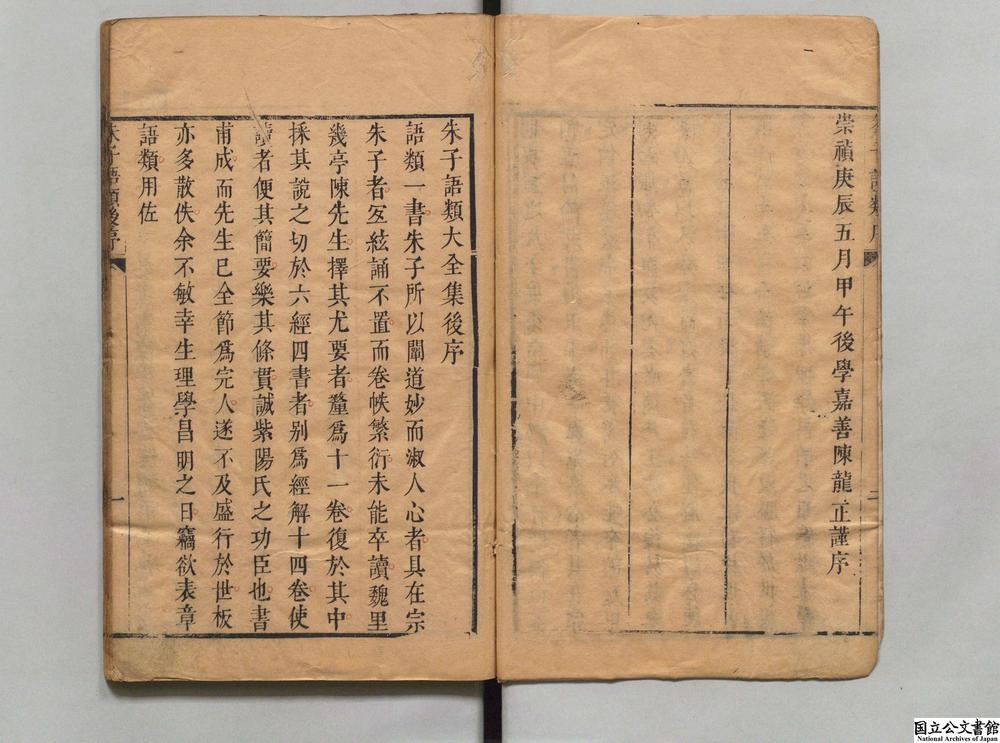 崇禎庚辰五月甲午後學嘉善陳龍正謹序
二
朱子語類大全集後序
語類一書朱子所以闡道妙而淑人心者具在宗
朱子者亙絃誦不置而卷帙繁衍未能卒讀魏里
幾亭陳先生擇其尤要者釐爲十一卷復於其中
採其說之切於六經四書者別爲經解十四卷使
讀者便其簡要樂其條貫誠紫陽氏之功臣也書
甫成而先生已全節爲完人遂不及盛行於世板
亦多散佚余不敏幸生理學昌明之日竊欲表章
語類用佐
朱子語類後序
一
国立公文書館
National Archives of Japan